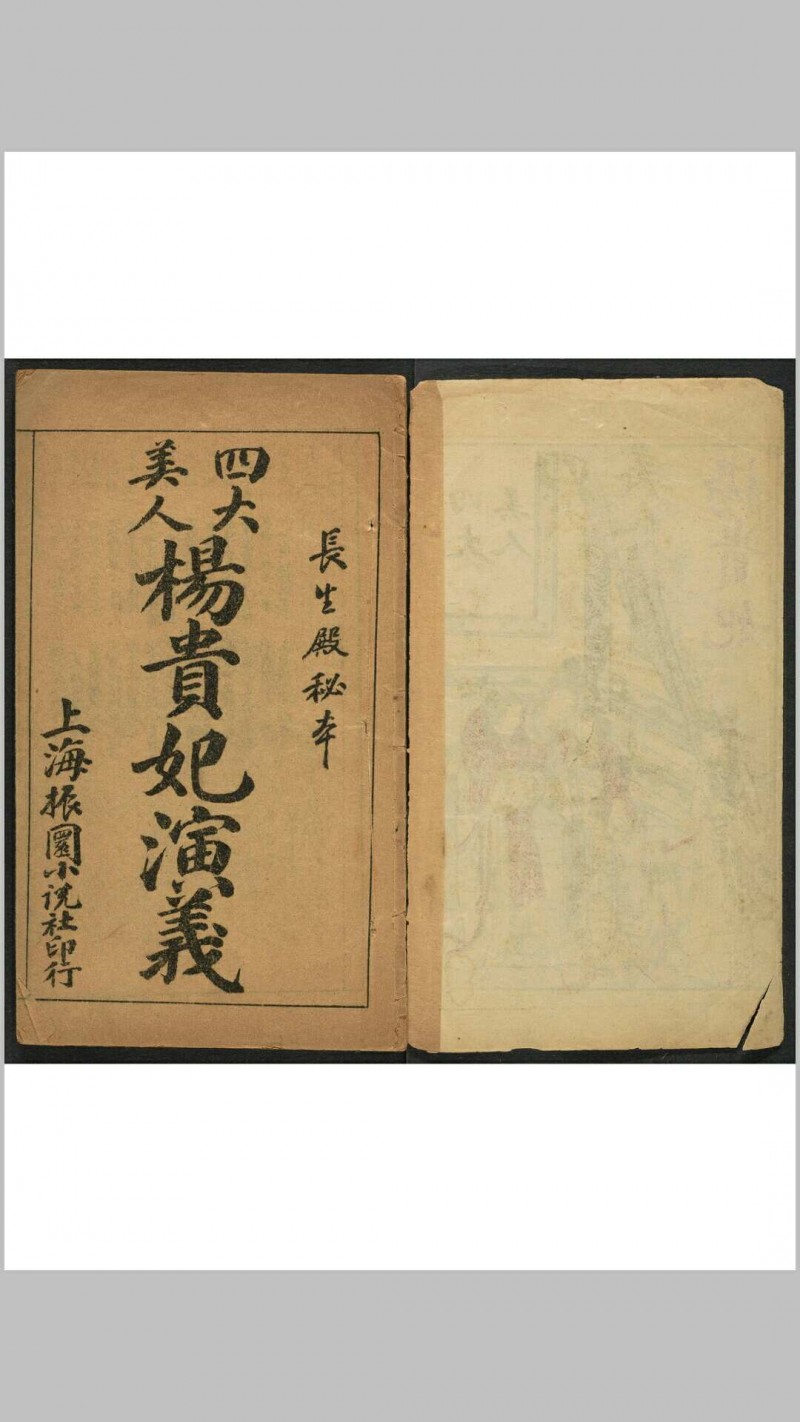 長生殿秘本
四大美人
楊貴妃演義
上海振圜小说社印行